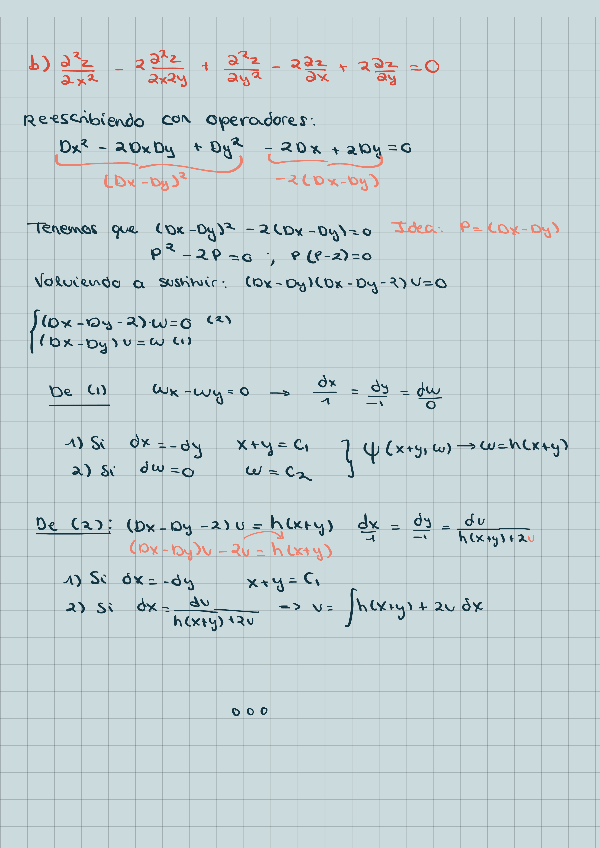 b) ∂²z/∂x² - 2 ∂²z/∂x∂y + ∂²z/∂y² - 2∂z/∂x + 2∂z/∂y = 0
Reescribiendo con operadores:
Dx² - 2DxDy + Dy² - 2Dx + 2Dy = 0
(Dx-Dy)² -2(Dx-Dy)
Tenemos que (Dx-Dy)² - 2(Dx-Dy)=0 Idea: P=(Dx-Dy)
P² - 2P = 0 ; P(P-2)=0
Volviendo a sustituir: (Dx-Dy)(Dx-Dy-2)u=0
{(Dx-Dy-2)·w=0 (2)
(Dx-Dy)u=w (1)
De (1) wx-wy=0 → dx/1 = dy/-1 = dw/0
1) Si dx=-dy x+y=C₁ } ψ(x+y,w) → w=h(x+y)
2) Si dw=0 w=C₂
De (2): (Dx-Dy-2)u = h(x+y) dx/1 = dy/-1 = du/h(x+y)+2u
(Dx-Dy)u - 2u = h(x+y)
1) Si dx=-dy x+y=C₁
2) Si dx= du/h(x+y)+2u → u= ∫h(x+y) + 2u dx
ooo